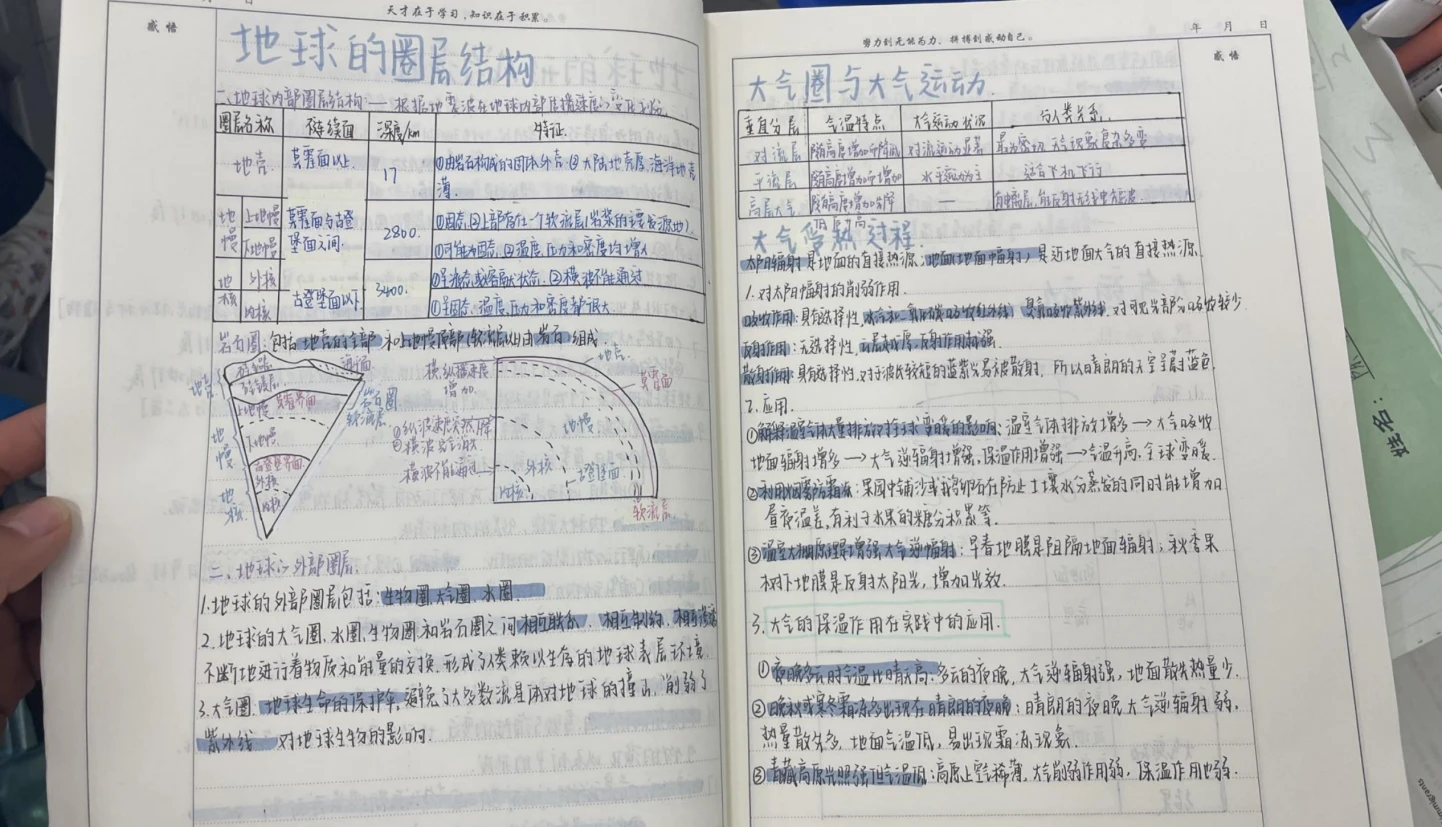 天才在于学习,知识在于积累。
感悟
地球的圈层结构
一、地球内部圈层结构——根据地震波在地球内部传播速度的变化划分
圈层名称 不连续面 深度/km 特征
地壳 莫霍面以上 17 ①由岩石构成的固体外壳 ②大陆地壳厚,海洋地壳薄.
地幔 上地幔 莫霍面与古登堡面之间 2800. ①固态,②上部存在一个软流层(岩浆的主要发源地).
下地幔 ①可能为固态,②温度、压力和密度均增大
地核 外核 古登堡面以下 3400. ①呈液态或熔融状态,②横波不能通过
内核 ①呈固态,温度、压力和密度都很大.
岩石圈:包括地壳的全部和上地幔顶部(软流层以上)由岩石组成.
地壳
硅铝层
硅镁层
海面
上地幔
莫霍界面
岩石圈
软流层
地幔
下地幔
古登堡界面
外核
地核
内核
横纵波速度
增加
①纵波速度突然下降
②横波完全消失
横波不能通过
地壳
莫霍面
地幔
外核
古登堡面
内核
软流层
二、地球的外部圈层
1.地球的外部圈层包括:生物圈、大气圈、水圈.
2.地球的大气圈、水圈、生物圈和岩石圈之间相互联系、相互制约、相互渗透
不断地进行着物质和能量的交换,形成了人类赖以生存的地球表层环境.
3.大气圈:地球生命的保护伞,避免了大多数流星体对地球的撞击,削弱了
紫外线 对地球生物的影响.
努力到无能为力、拼搏到感动自己。
年 月 日
感悟
大气圈与大气运动
垂直分层 气温特点 大气运动状况 与人类关系.
对流层 随高度增加而降低 对流运动显著 最为密切,天气现象复杂多变
平流层 随高度增加而增加 水平运动为主 适合飞机飞行
高层大气 随高度增加先降后升高 有电离层,能反射无线电短波.
大气受热过程
太阳辐射是地面的直接热源;地面(地面辐射)是近地面大气的直接热源
1.对太阳辐射的削弱作用.
吸收作用:具有选择性,水汽和二氧化碳吸收红外线,臭氧吸收紫外线.对可见光部分吸收较少
反射作用:无选择性,云层越厚,反射作用越强.
散射作用:具有选择性,对于波长较短的蓝紫光易被散射,所以晴朗的天空呈蔚蓝色.
2.应用.
①解释温室气体大量排放对全球变暖的影响:温室气体排放增多→大气吸收
地面辐射增多→大气逆辐射增强,保温作用增强→气温升高,全球变暖.
②利用烟雾防霜冻:果园中铺沙或鹅卵石在防止土壤水分蒸发的同时能增加
昼夜温差,有利于水果的糖分积累等.
③温室大棚原理增强大气逆辐射:早春地膜是阻隔地面辐射;秋季果
树下地膜是反射太阳光,增加光效.
3.大气的保温作用在实践中的应用.
①夜晚多云时气温比晴天高:多云的夜晚,大气逆辐射强,地面散失热量少.
②晚秋或寒冬霜冻多出现在晴朗的夜晚:晴朗的夜晚大气逆辐射弱,
热量散失多,地面气温低,易出现霜冻现象.
③青藏高原光照强但气温低:高原上空气稀薄,大气削弱作用弱,保温作用也弱.
姓名: